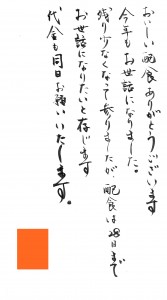 おいしい配食ありがとうございます
今年もお世話になりました。
残り少なくなって参りましたが、配食は28日まで
お世話になりたいと存じます
代金も同日お願いいたします。